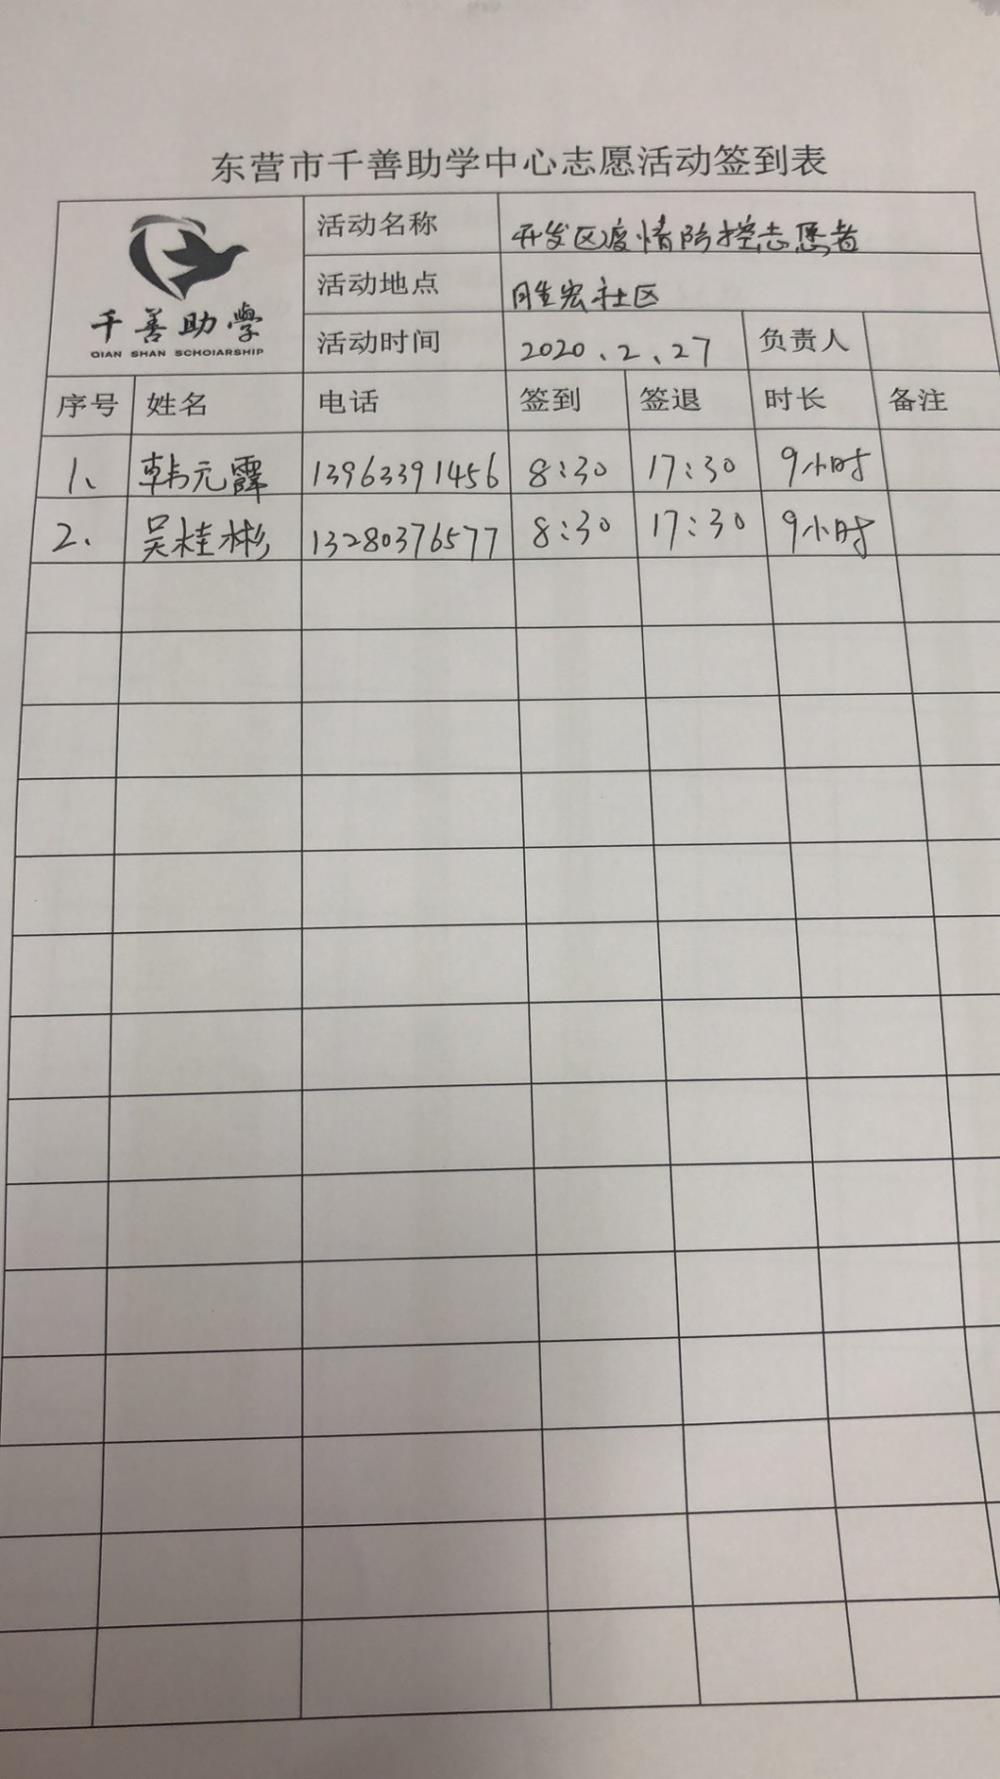 东营市千善助学中心志愿活动签到表
千善助學
QIAN SHAN SCHOIARSHIP
活动名称 开发区疫情防控志愿者
活动地点 胜宏社区
活动时间 2020、2、27 负责人
序号 姓名 电话 签到 签退 时长 备注
1、 韩元霞 13963391456 8:30 17:30 9小时
2、 吴桂彬 13280376577 8:30 17:30 9小时